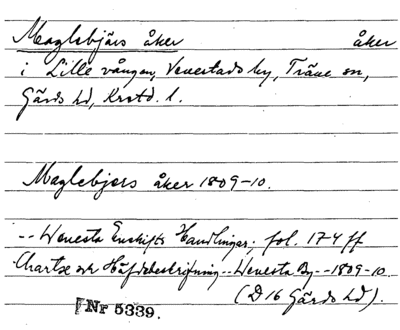 Maglebjärs åker åker
i Lille vången, Venestads by, Träne sn,
Gärds hd, Krstd. l.
Maglebjers åker 1809-10.
-- Wenesta Enskifts Handlingar; fol. 174 ff
Chartæ och Häfdebeskrifning -- Wenesta By -- 1809-10.
(D 16 Gärds hd).
Nr 5339.